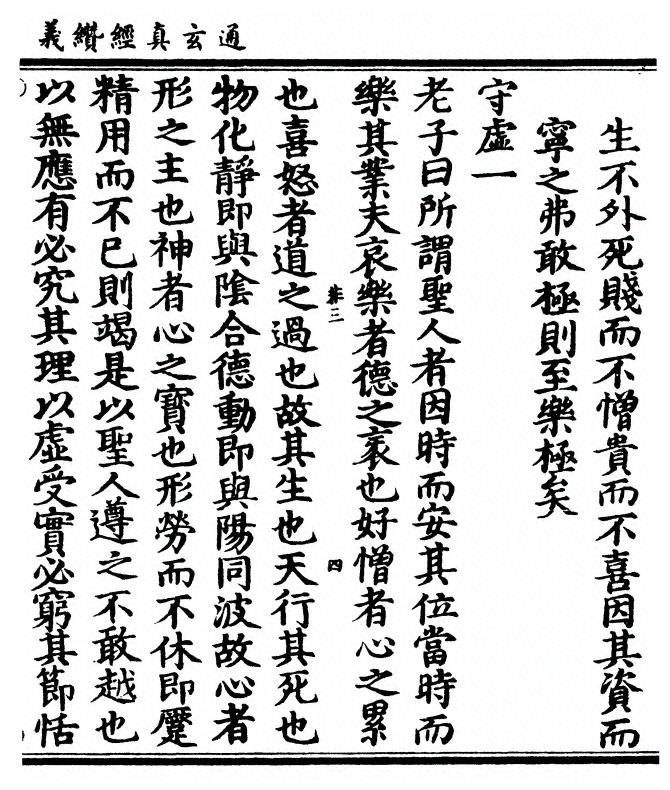 通玄真經纘義
生不外死賤而不憎貴而不喜因其資而
寧之弗敢極則至樂極矣
守虛一
老子曰所謂聖人者因時而安其位當時而
樂其業夫哀樂者德之衺也好憎者心之累
棻三
四
也喜怒者道之過也故其生也天行其死也
物化靜即與陰合德動即與陽同波故心者
形之主也神者心之寶也形勞而不休即蹷
精用而不已則竭是以聖人遵之不敢越也
以無應有必究其理以虛受實必窮其節恬